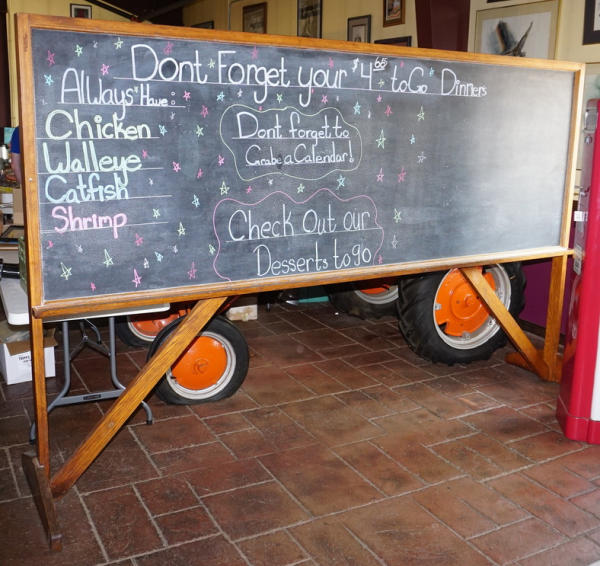 Dont Forget your $4.65 toGo Dinners
Always Have:
Chicken
Walleye
Catfish
Shrimp
Dont forget to
Grabe a Calendar!
Check Out our
Desserts to go